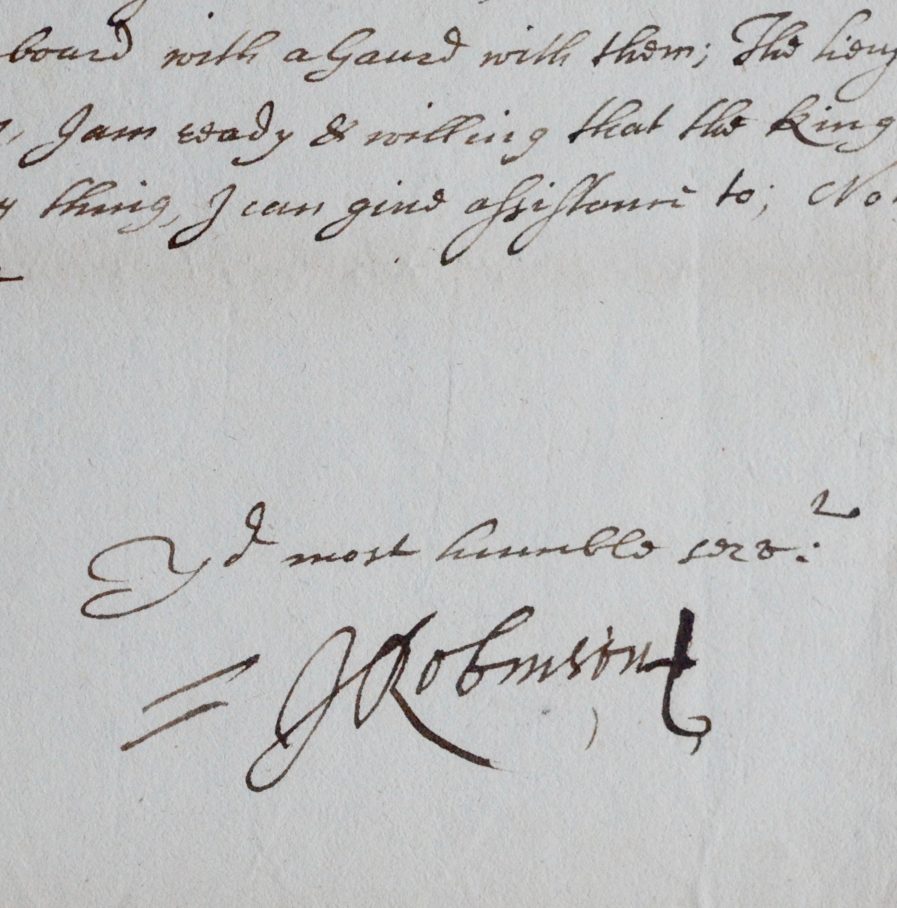 board with a Gaurd with them; The lieu
I am ready & willing that the King
thing, I can give assistance to; No
Yor most humble servt
J Robinson